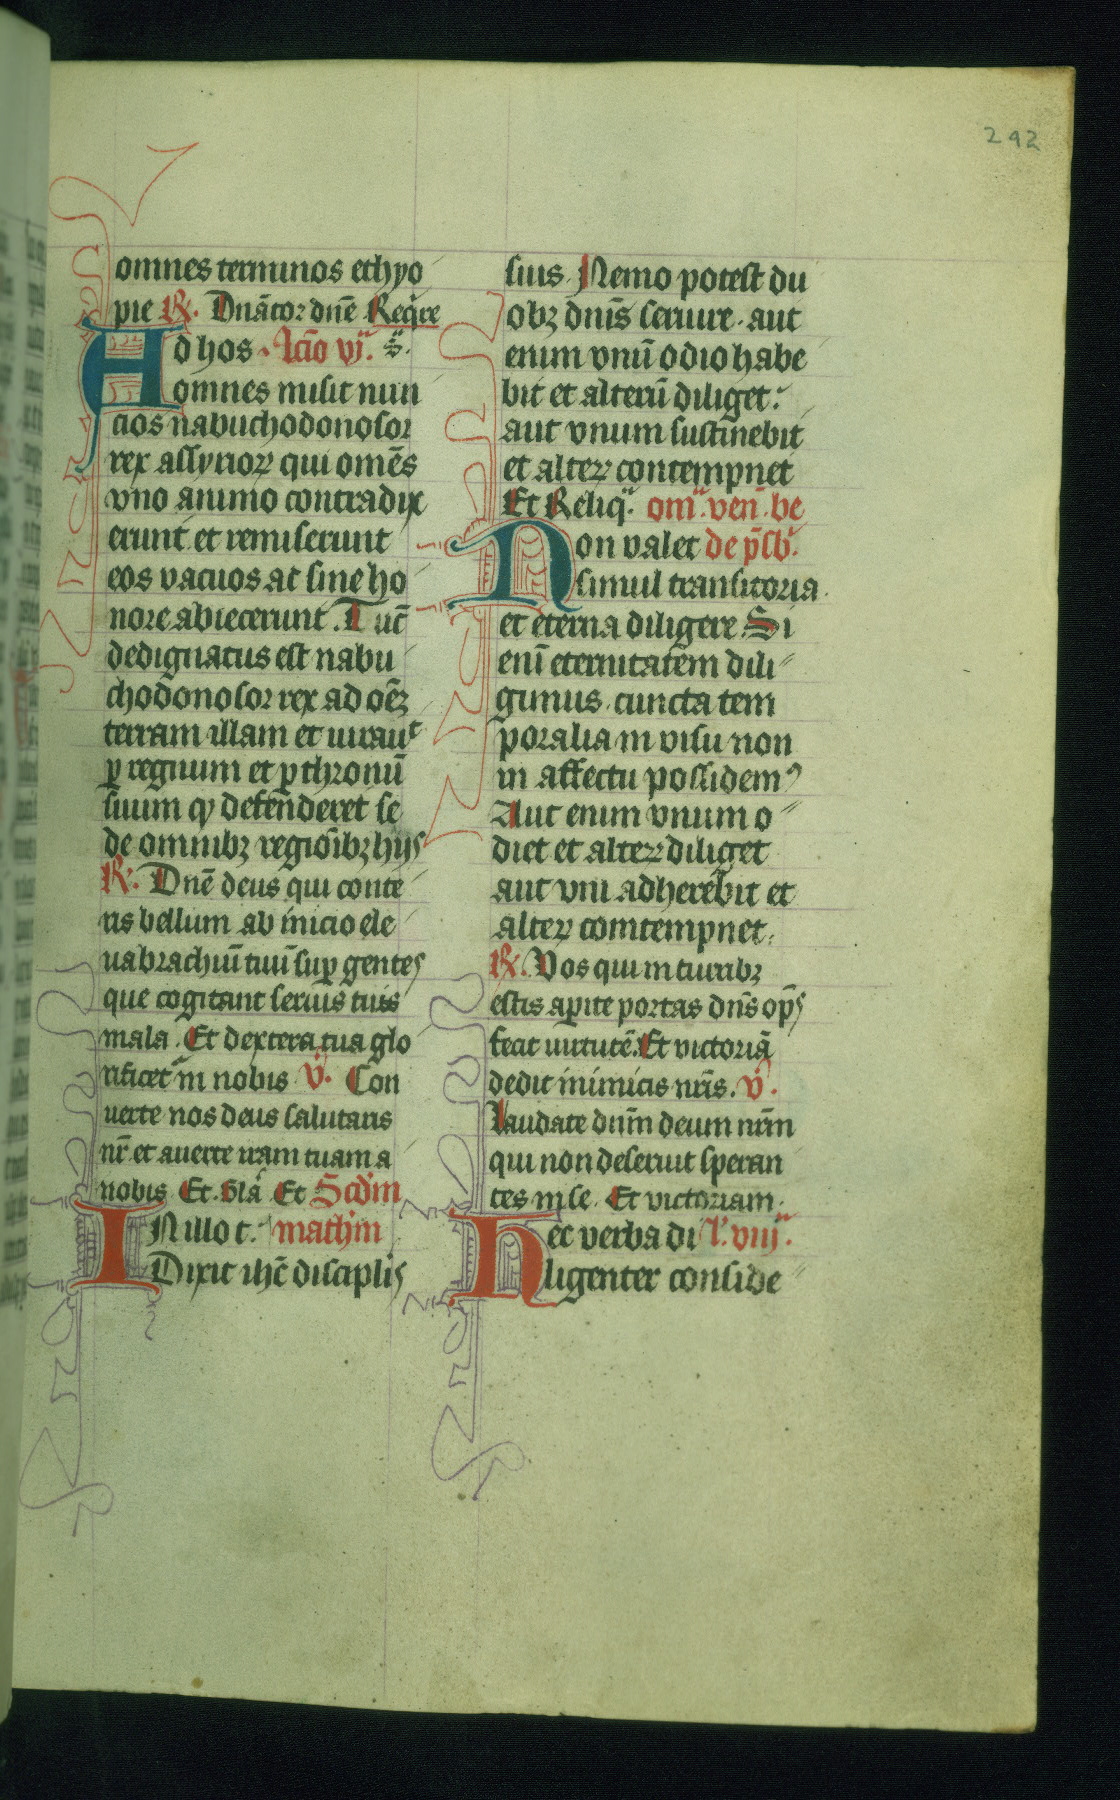 242
omnes terminos ethyo
pie R. Dnãtor dnẽ Req̃re
Ad hos. lcĩo vj. s̃.
omnes misit nun
cios nabuchodonosor
rex assyrioꝝ qui omẽs
vno animo contradix
erunt et remiserunt
eos vacuos ac sine ho
nore abiecerunt. Tuc̃
dedignatus est nabu
chodonosor rex ad oẽꝫ
terram illam et iurauᵗ
ꝑ regnum et ꝑ thronũ
suum ꝙ defenderet se
de omnibꝫ regiõibꝫ hijs
R. Dnẽ deus qui conte
ris bellum ab inicio ele
ua brachiũ tuũ suꝑ gentes
que cogitant seruis tuis
mala. Et dextera tua glo
rificet̃ in nobis v̾. Con
uerte nos deus salutaris
nr̃ et auerte iram tuam a
nobis Et. Glã Et Scdm̃
IN illo t. mathm̃
Dixit ihc̃ disciplis
suis. Nemo potest du
obꝫ dnĩs seruire. aut
enim vnũ odio habe
bit et alterũ diliget:
aut vnum sustinebit
et alteꝝ contempnet
Et Reliq̃. om̃. ven̾. be
Non valet de p̃sb̾.
simul transitoria
et eterna diligere. Si
enĩ eternitatem dili
gimus. cuncta tem
poralia in visu non
in affectu possidemꝰ
Aut enim vnum o
diet et alteꝝ diliget
aut vni adherebit et
alteꝝ comtempnet.
R. Vos qui in turribꝫ
estis aꝑite portas dñs opꝭ
fecit uirtutẽ. Et victoriã
dedit inimicis nr̃is. v̾.
Laudate dnm̃ deum nr̃m
qui non deseruit speran
tes in se. Et victoriam.
Hec verba di l̾. viij.
ligenter conside